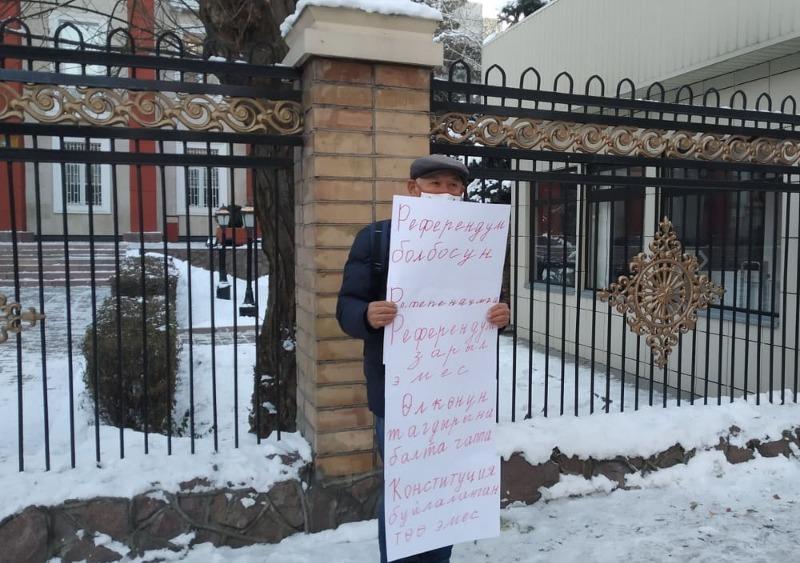 Референдум
болбосун
Референдум
зарыл
эмес
Өлкөнүн
тагдырына
балта чапа
Конституция
буйламатан
төө эмес